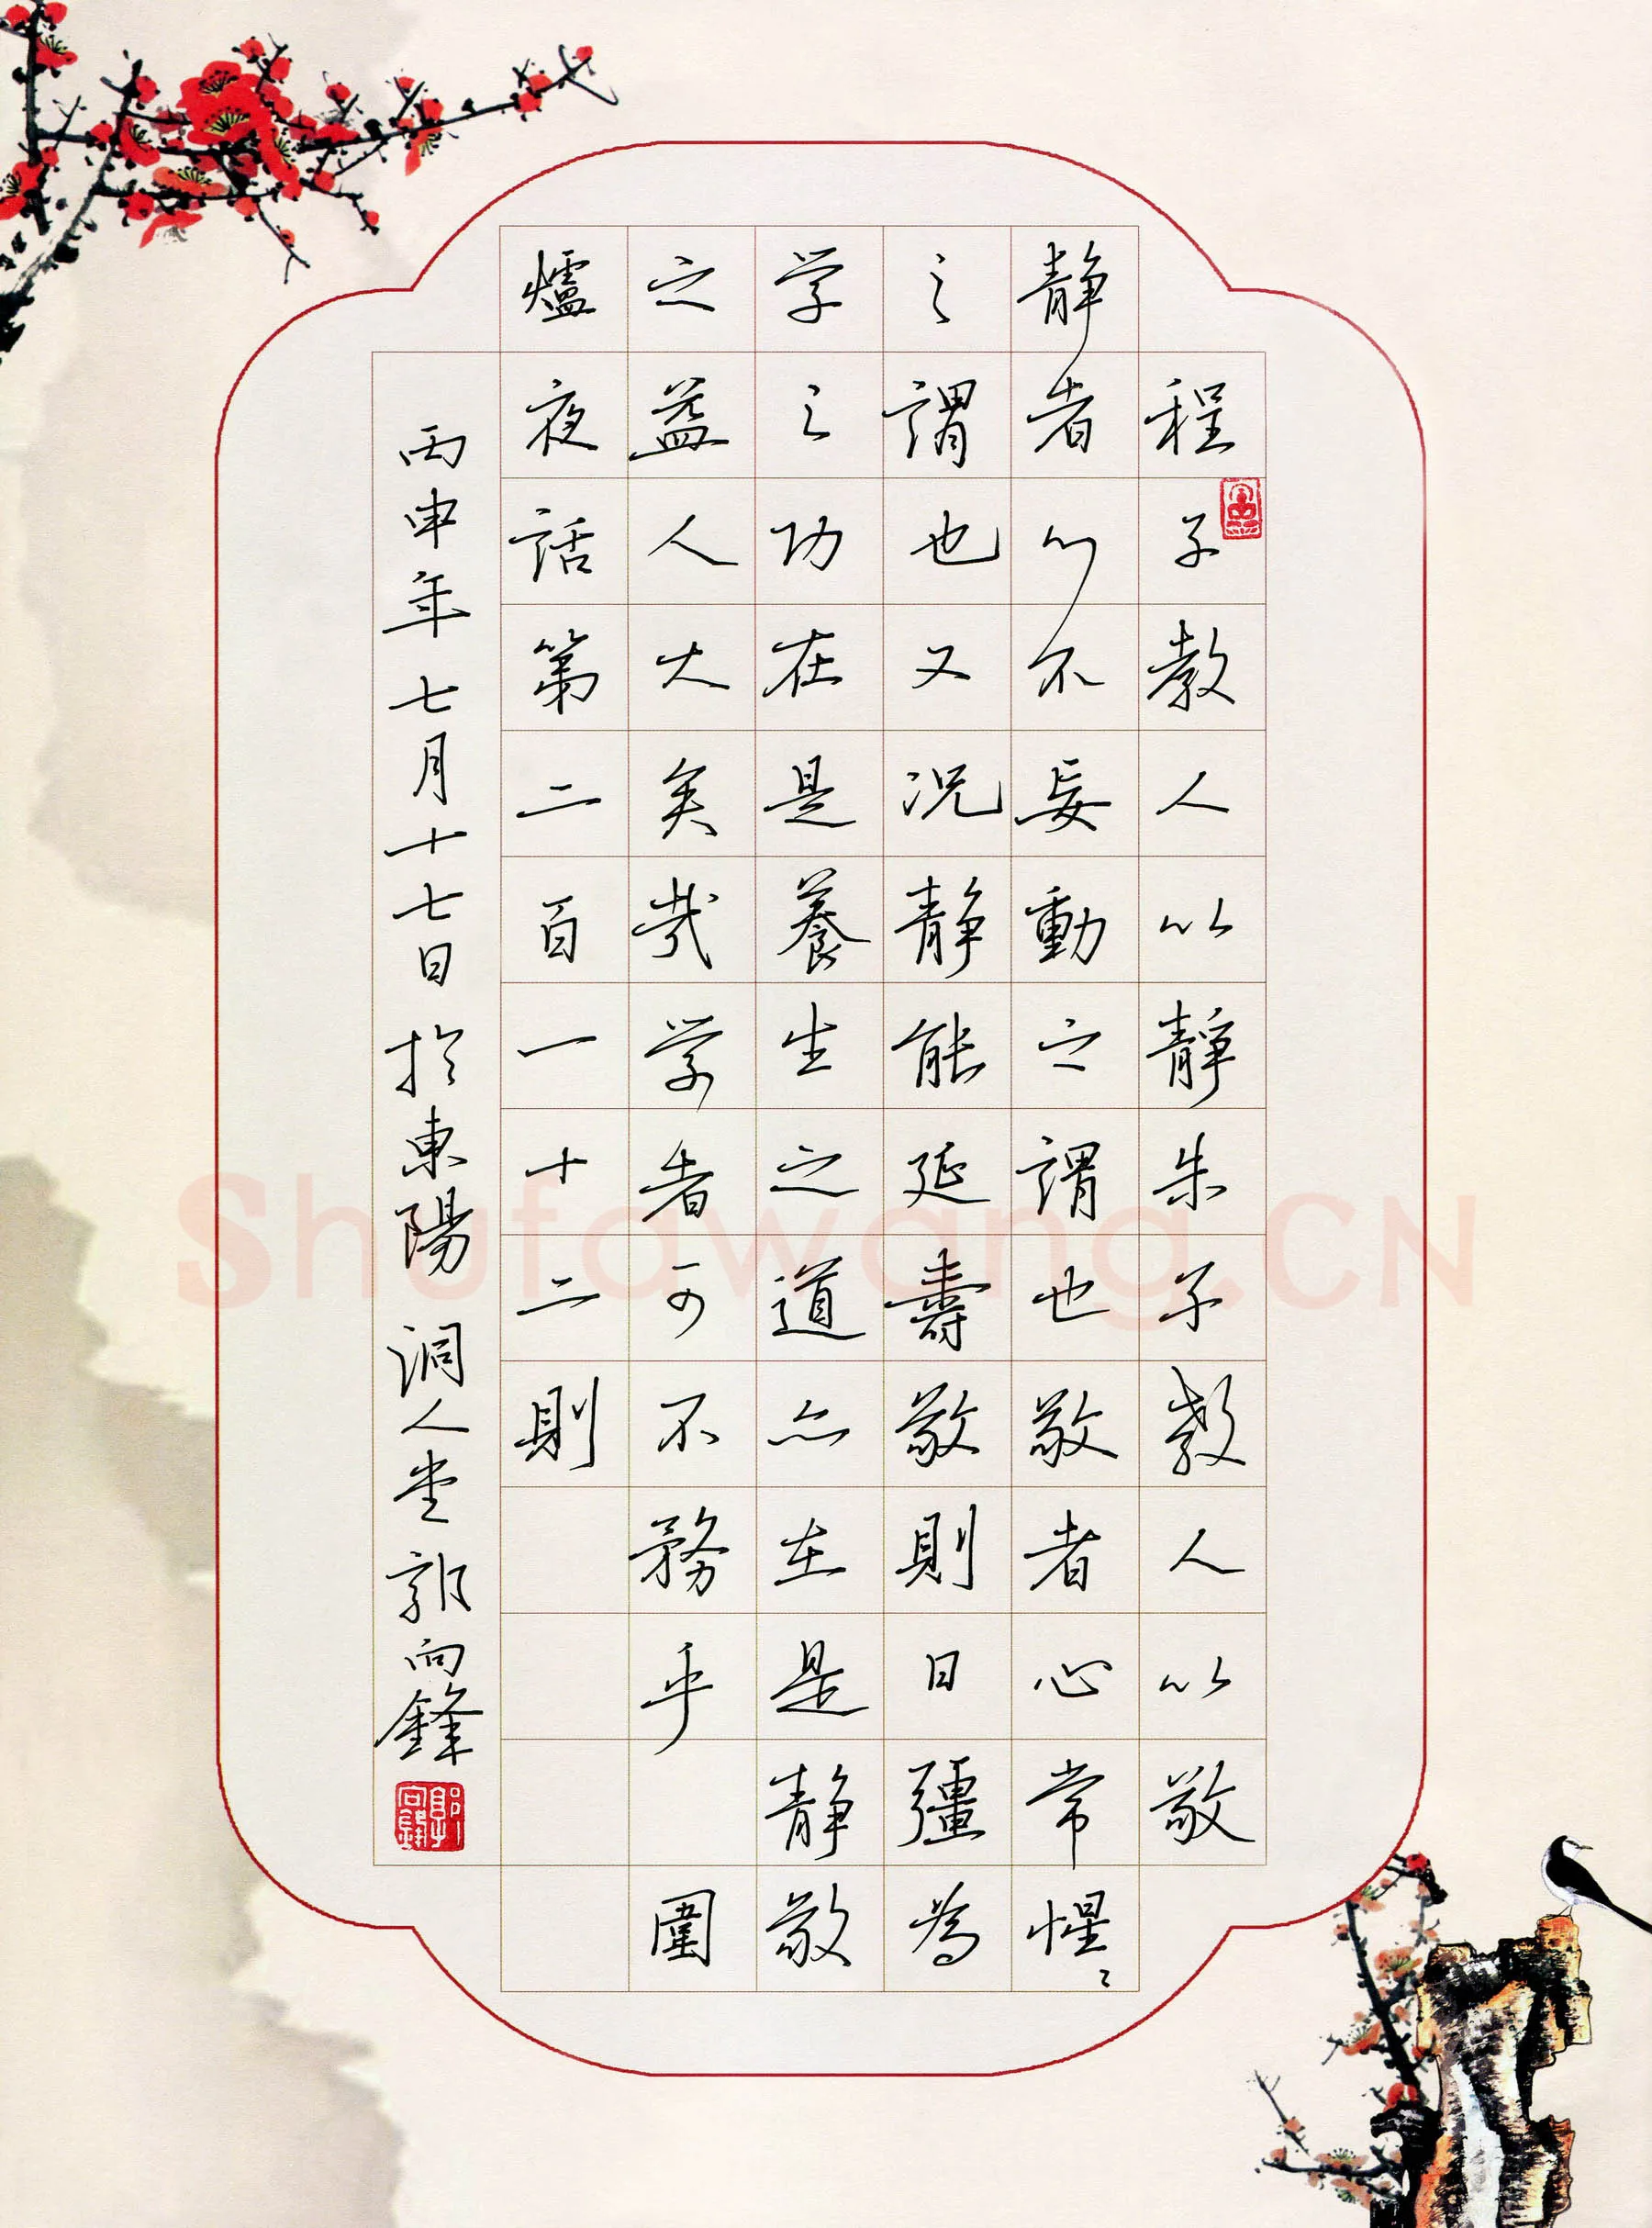 程子教人以靜朱子教人以敬
静者心不妄動之謂也敬者心常惺〻
之謂也又况静能延壽敬則日彊為
学之功在是養生之道亦在是静敬
之益人大矣哉学者可不務乎 圍
爐夜話第二百一十二則
丙申年 七月十七日 於東陽 人堂 郭向鋒
Shufawang.CN